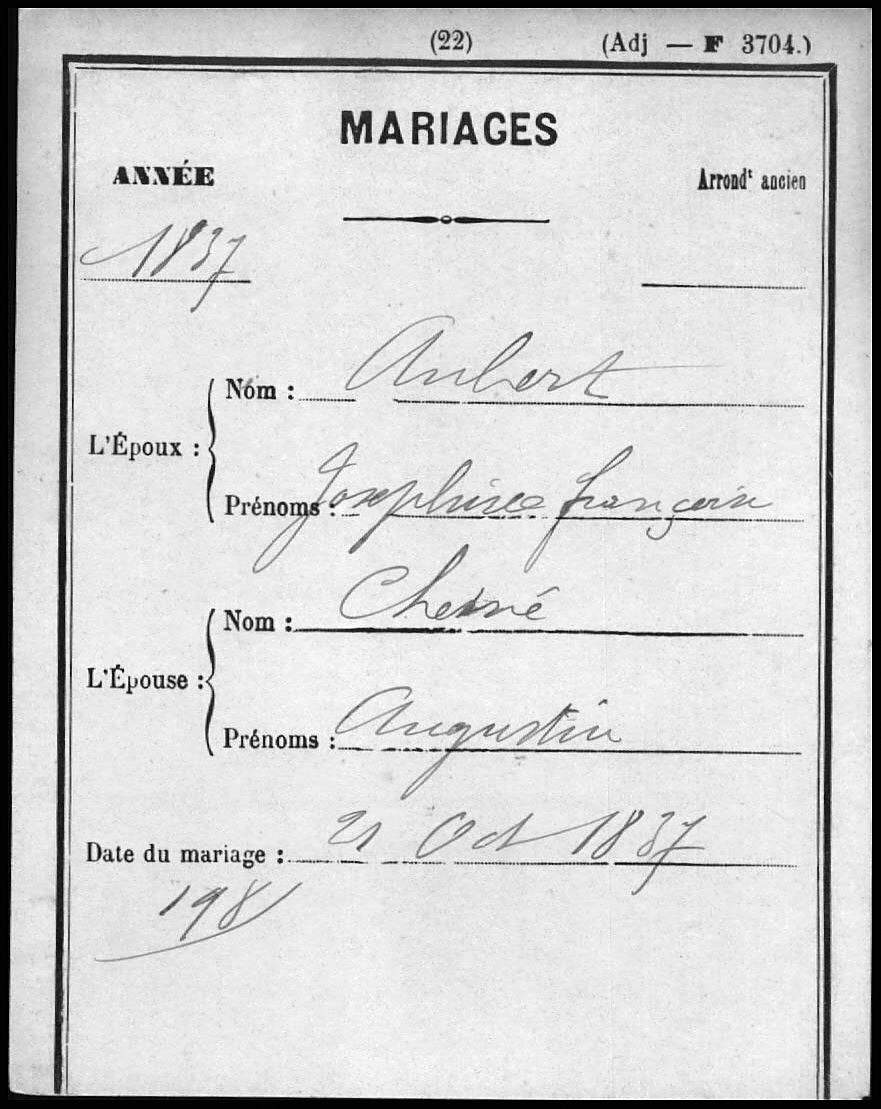 (22) (Adj — F 3704.)
MARIAGES
ANNÉE Arrondt ancien
1837
Nom : Aubert
L'Époux :
Prénoms : Josephine françoise
Nom : Chesné
L'Épouse :
Prénoms : Augustin
Date du mariage : 21 Oct 1837
198